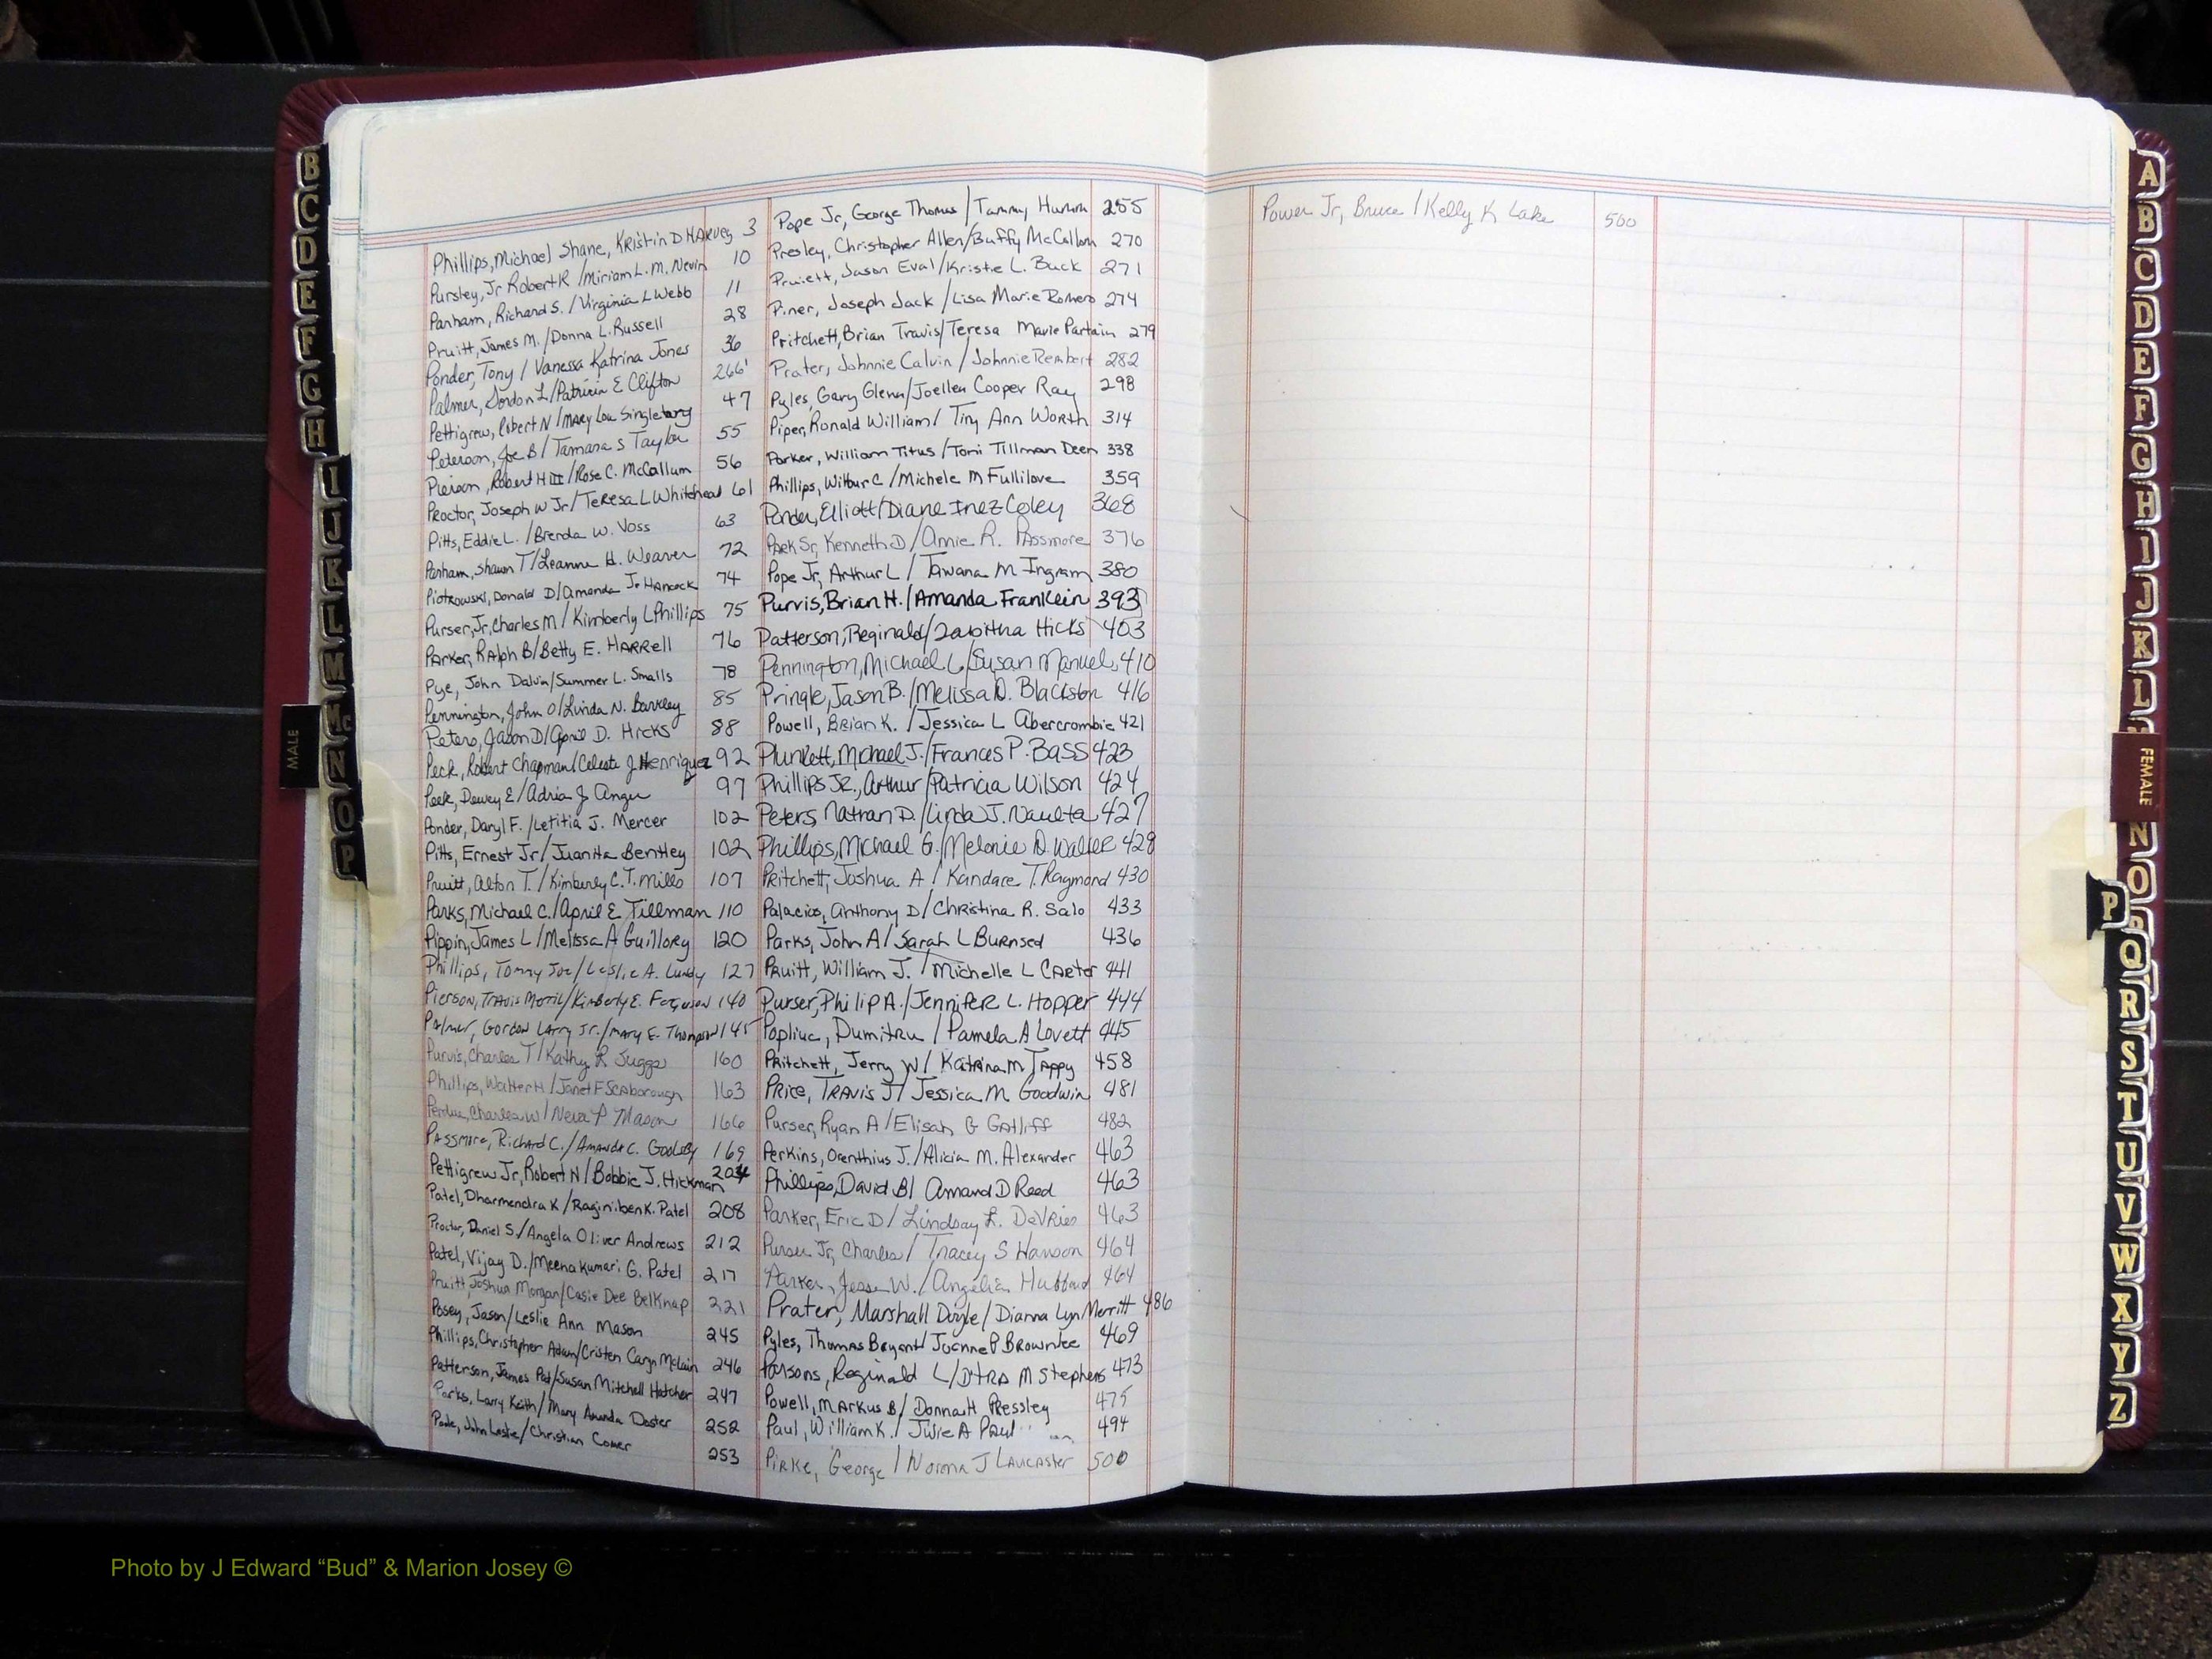 B
C
D
E
F
G
H
I
J
K
L
M
Mc
N
O
P
MALE
Phillips, Michael Shane, Kristin D Harvey 3
Pursley, Jr Robert R / Miriam L. M. Nevin 10
Parham, Richard S. / Virginia L Webb 11
Pruitt, James M. / Donna L. Russell 28
Ponder, Tony / Vanessa Katrina Jones 36
Palmer, Gordon L / Patricia E Clifton 266
Pettigrew, Robert N / Mary Lou Singletary 47
Peterson, Joe B / Tamara S Taylor 55
Pierson, Robert H III / Rose C. McCallum 56
Proctor, Joseph W Jr / Teresa L Whitehead 61
Pitts, Eddie L. / Brenda W. Voss 63
Parham, Shawn T / Leanne H. Weaver 72
Piotrowski, Donald D / Amanda Jo Hancock 74
Purser, Jr, Charles M / Kimberly L Phillips 75
Parker, Ralph B / Betty E. Harrell 76
Pye, John Dalvin / Summer L. Smalls 78
Pennington, John O / Linda N. Barkley 85
Peters, Jason D / April D. Hicks 88
Peck, Robert Chapman / Celeste J Henriquez 92
Peek, Dewey E / Adria J 97
Ponder, Daryl F. / Letitia J. Mercer 102
Pitts, Ernest Jr / Juanita Bentley 102
Pruitt, Alton T. / Kimberly C. T. Mills 107
Parks, Michael C. / April E Tillman 110
Pippin, James L / Melissa A Guillory 120
Phillips, Tommy Joe / Leslie A. Lundy 127
Pierson, Travis Morril / Kimberly E. Ferguson 140
Palmer, Gordon Larry Jr. / Mary E. Thompson 145
Purvis, Charles T / Kathy R Suggs 160
Phillips, Walter H / Janet F Scaborough 163
Perdue, Charles W / Neva P Mason 166
Passmore, Richard C. / Amanda C. Godley 169
Pettigrew Jr, Robert N / Bobbie J. Hickman 204
Patel, Dharmendra K / Raginiben K. Patel 208
Proctor, Daniel S. / Angela Oliver Andrews 212
Patel, Vijay D. / Meenakumari G. Patel 217
Pruitt, Joshua Morgan / Casie Dee Belknap 221
Posey, Jason / Leslie Ann Mason 245
Phillips, Christopher Adam / Cristen Caryn McLain 246
Patterson, James Pat / Susan Mitchell Hatcher 247
Parks, Larry Keith / Mary Amanda Doster 252
Poole, John Leslie / Christian Comer 253
Pope Jr, George Thomas / Tammy 255
Presley, Christopher Allen / Buffy McCollom 270
Pruiett, Jason Eval / Kristie L. Buck 271
Piner, Joseph Jack / Lisa Marie Romero 274
Pritchett, Brian Travis / Teresa Marie Partain 279
Prater, Johnnie Calvin / Johnnie Rembert 282
Pyles, Gary Glenn / Joellen Cooper Ray 298
Piper, Ronald William / Tiny Ann Worth 314
Parker, William Titus / Toni Tillman Deen 338
Phillips, Wilbur C / Michele M Fullilove 359
Ponder, Elliott / Diane Inez Coley 368
Park Sr, Kenneth D / Annie R. Passmore 376
Pope Jr, Arthur L / Tawana M Ingram 380
Purvis, Brian H. / Amanda Franklin 393
Patterson, Reginald / Zabitha Hicks 403
Pennington, Michael L / Susan Manuel 410
Pringle, Jason B. / Melissa D. Blackston 416
Powell, Brian K. / Jessica L Abercrombie 421
Plunkett, Michael J. / Frances P. Bass 423
Phillips Jr., Arthur / Patricia Wilson 424
Peters, Nathan D. / Linda J. Naulta 427
Phillips, Michael G. / Melonie D. Walker 428
Pritchett, Joshua A / Kandace T. Raymond 430
Palacios, Anthony D / Christina R. Salo 433
Parks, John A / Sarah L Burnsed 436
Pruitt, William J. / Michelle L Carter 441
Purser, Philip A. / Jennifer L. Hopper 444
Popliuc, Dumitru / Pamela A Lovett 445
Pritchett, Jerry W / Katrina M Tappy 458
Price, Travis J / Jessica M Goodwin 481
Purser, Ryan A / Elisah G Gatliff 482
Perkins, Orenthius J. / Alicia M. Alexander 463
Phillips, David B / Amand D Reed 463
Parker, Eric D / Lindsay L. DeVries 463
Purser Jr, Charles / Tracey S Hanson 464
Parker, Jesse W. / Angelia Hubbard 464
Prater, Marshall Doyle / Dianna Lyn Merritt 486
Pyles, Thomas Bryant / Joanne P Brownlee 469
Parsons, Reginald L / D'tra M Stephens 473
Powell, Markus B / Donna H Pressley 475
Paul, William K. / Julie A Paul 494
Pirke, George / Norma J Lancaster 500
Power Jr, Bruce / Kelly K Lake 500
A
B
C
D
E
F
G
H
I
J
K
L
FEMALE
N
O
P
Q
R
S
T
U
V
W
X
Y
Z
Photo by J Edward “Bud” & Marion Josey ©